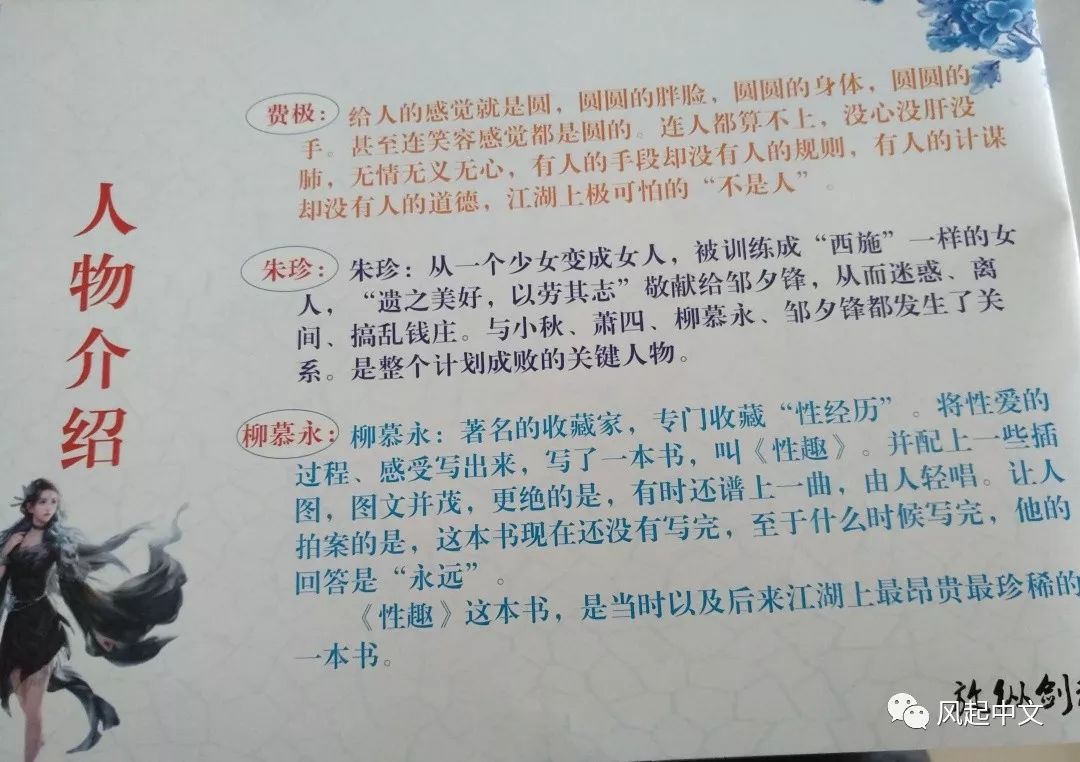 人物介绍
费极：给人的感觉就是圆，圆圆的胖脸，圆圆的身体，圆圆的
手。甚至连笑容感觉都是圆的。连人都算不上，没心没肝没
肺，无情无义无心，有人的手段却没有人的规则，有人的计谋
却没有人的道德，江湖上极可怕的“不是人”。
朱珍：朱珍：从一个少女变成女人，被训练成“西施”一样的女
人，“遗之美好，以劳其志”敬献给邹夕锋，从而迷惑、离
间、搞乱钱庄。与小秋、萧四、柳慕永、邹夕锋都发生了关
系。是整个计划成败的关键人物。
柳慕永：柳慕永：著名的收藏家，专门收藏“性经历”。将性爱的
过程、感受写出来，写了一本书，叫《性趣》。并配上一些插
图，图文并茂，更绝的是，有时还谱上一曲，由人轻唱。让人
拍案的是，这本书现在还没有写完，至于什么时候写完，他的
回答是“永远”。
《性趣》这本书，是当时以及后来江湖上最昂贵最珍稀的
一本书。
放纵剑
风起中文